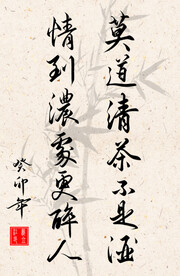 莫道清茶不是酒
情到濃處更醉人
癸卯年